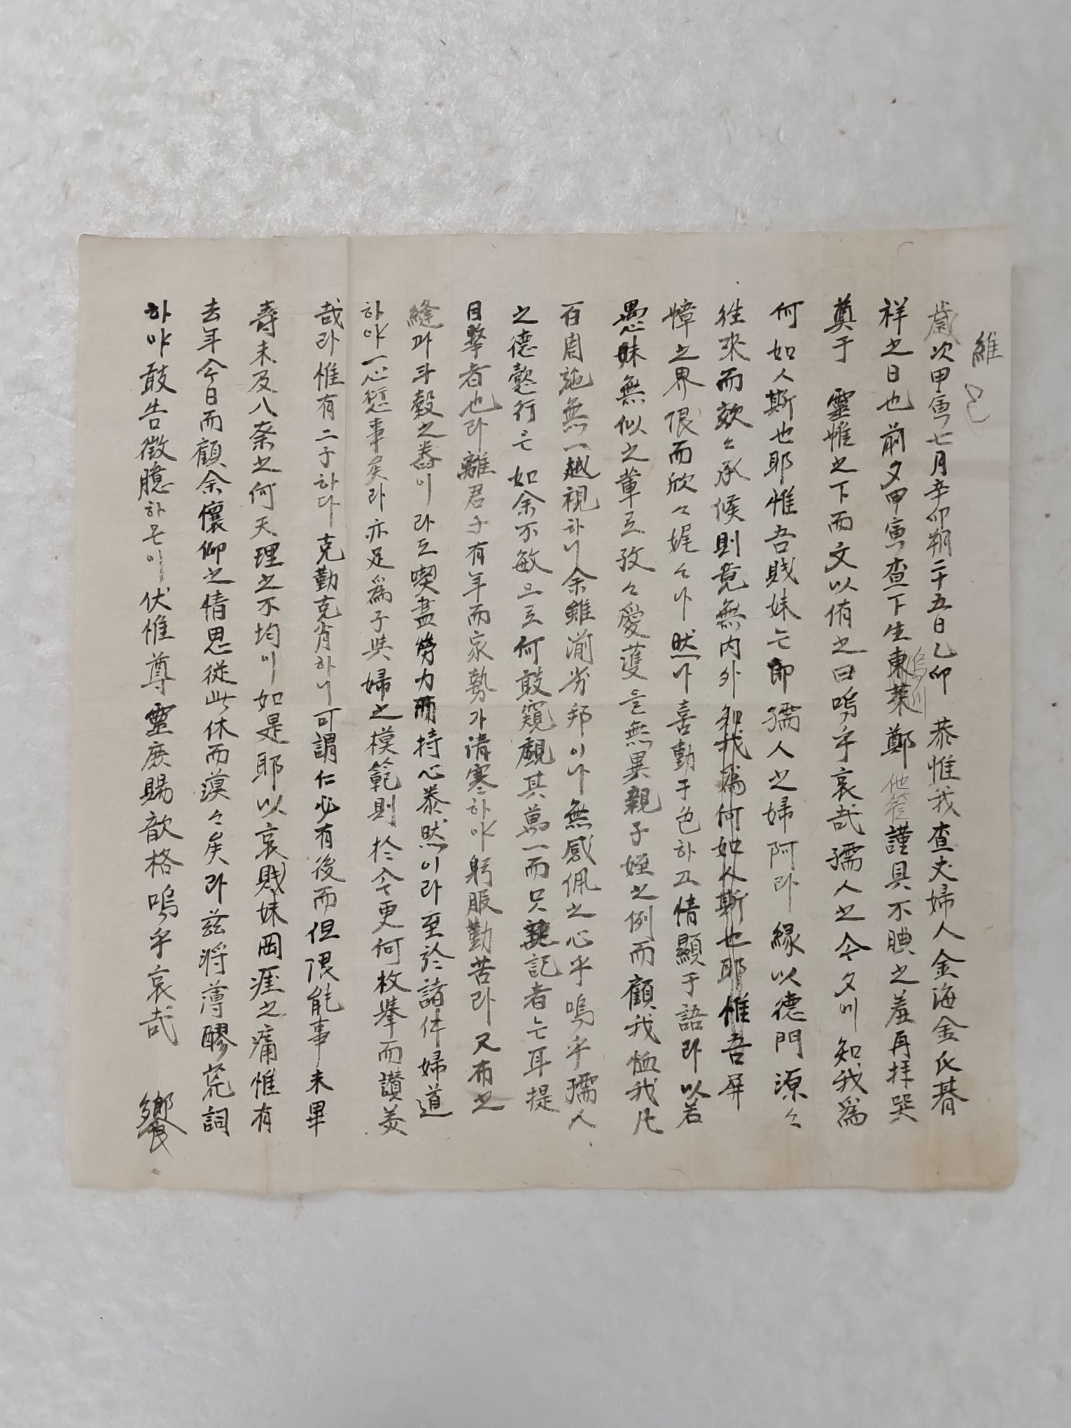 維
歲次甲寅七月辛卯朔二十五日乙卯 恭惟我查丈婦人金海金氏朞
祥之日也前夕甲寅查下生東萊鄭 謹具不腆之羞再拝哭
奠于 靈惟之下而文以侑之曰嗚乎哀哉孺人之今夕川知我爲
何如人斯也耶惟吾賤妹는即孺人之婦阿라 緣以德門源々
往來而欬々承候則竟無内外知我爲何如人斯也耶惟吾屏
幛之界限而欣々娓々가 然가喜動于色하고情顯于語라以若
愚妹無似之輩로孜々愛護를無異親子姪之例而顧我恤我凡
百周旋無一越視하니余雖湔劣邦이나無感佩之心乎嗚乎孺人
之德懿行은如余不敏으로何敢窺觀其萬一而只 記者는耳提
目擊者也라離君子有年而家勢가清寒하야躬服勤苦라又布之
縫과斗穀之 이라도喫盡勞力而持心泰然이라至於諸件婦道
하야一心 事矣라亦足爲子與婦之模範則於今更何枚舉而讃美
哉라惟有二子하다克勤克肖하니可謂仁必有後而但限能事未畢
壽未及八耋之何天理之不均이如是耶以哀賤妹罔涯之痛惟有
去年今日而顧余懷仰之情思從此休而漠々矣라茲將薄醪荒詞
하야敢告微臆하온이伏惟尊靈庶賜歆格嗚乎哀哉 饗